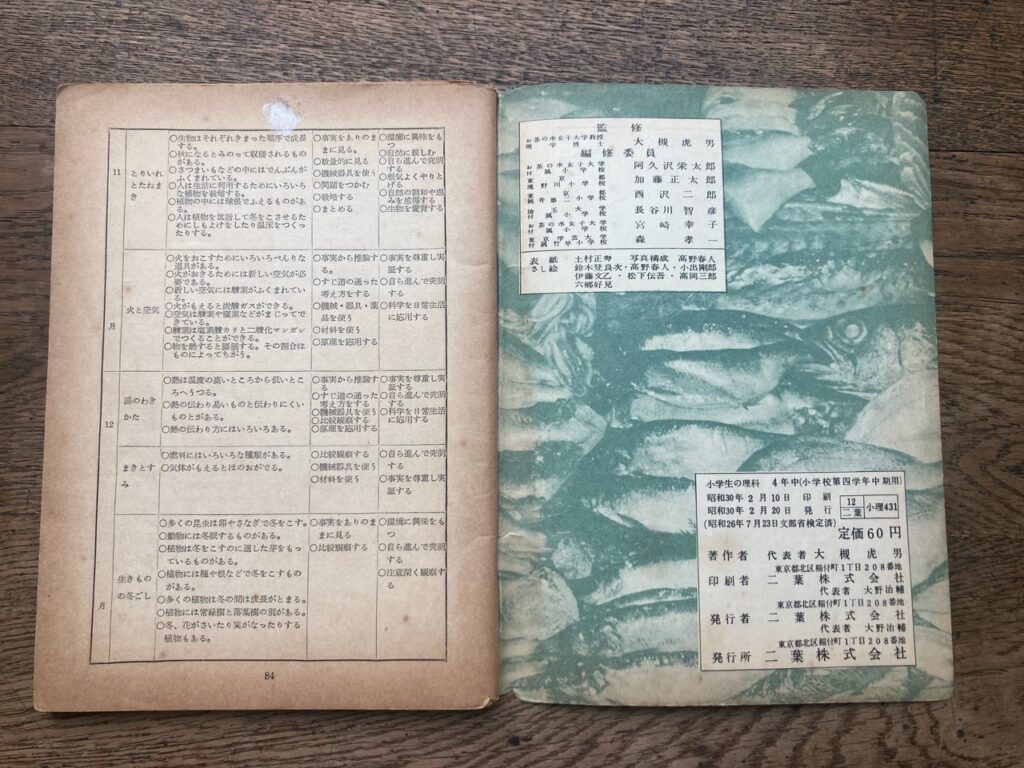 11
月
とりいれ
とたねま
き
○生物はそれぞれきまった順序で成長
する。
○秋になるとみのって収穫されるもの
がある。
○さつまいもなどの中にはでんぷんが
ふくまれている。
○人は生活に利用するためにいろいろ
な植物を栽培する。
○植物の中には球根でふえるものがあ
る。
○人は植物を世話して冬をこさせるた
めにしもよけをしたり温床をつくっ
たりする。
○事実をありのま
まに見る。
○数量的に見る
○機械器具を使う
○問題をつかむ
○栽培する
○まとめる
○環境に興味をも
つ
○自然に親しむ
○自ら進んで究明
する
○根気よくやりと
げる
○自然の調和や恵
みを感得する
○生物を愛育する
火と空気
○火をおこすためにいろいろべんりな
道具がある。
○火がおきるためには新しい空気が必
要である。
○新しい空気には酸素がふくまれてい
る。
○火がもえると炭酸ガスができる。
○空気は酸素や窒素などがまじってで
きている。
○酸素は塩素酸カリと二酸化マンガン
でつくることができる。
○物を熱すると膨脹する。その割合は
ものによってちがう。
○事実から推論す
る。
○すじ道の通った
考え方をする
○機械・器具・薬
品を使う
○材料を使う
○原理を応用する
○事実を尊重し実
証する
○自ら進んで究明
する
○科学を日常生活
に応用する
12
月
湯のわき
かた
○熱は温度の高いところから低いとこ
ろへうつる。
○熱の伝わり易いものと伝わりにくい
ものとがある。
○熱の伝わり方にはいろいろある。
○事実から推論す
る
○すじ道の通った
考え方をする
○機械器具を使う
○比較観察する
○原理を応用する
○事実を尊重し実
証する
○自ら進んで究明
する
○科学を日常生活
に応用する
まきとす
み
○燃料にはいろいろな種類がある。
○気体がもえるとほのおがでる。
○比較観察する
○機械器具を使う
○材料を使う
○自ら進んで究明
する
○事実を尊重し実
証する
生きもの
の冬ごし
○多くの昆虫は卵やさなぎで冬をこす。
○動物には冬眠するものがある。
○植物は冬をこすのに適した芽をもっ
ているものがある。
○植物には種や根などで冬をこすもの
がある。
○多くの植物は冬の間は成長がとまる。
○植物には常緑樹と落葉樹の別がある。
○冬、花がさいたり実がなったりする
植物もある。
○事実をありのま
まに見る
○比較観察する
○環境に興味をも
つ
○自ら進んで究明
する
○注意深く観察す
る
84
監修
お茶の水女子大学教授
理学博士 大槻虎男
編修委員
お茶の水女子大学
付属小学校 阿久沢栄太郎
東京都
滝野川小学校 加藤正太郎
東京都
桃井第二小学校 西沢二郎
埼玉大学
付属小学校 長谷川智彦
お茶の水女子大学
付属小学校 宮崎幸子
東京学芸大学
付属竹早小学校 森孝一
表紙 土村正寿 写真構成 高野春人
さし絵 鈴木登良次・高野春人・小出剛郎
伊藤文乙・松下伝吾・高岡三郎
六郷好見
小学生の理科 4年中(小学校第四学年中期用)
昭和30年2月10日 印刷
昭和30年2月20日 発行
12
二葉
小理431
(昭和26年7月23日文部省検定済)
定価60円
著作者 代表者 大槻虎男
東京都北区稲付町1丁目208番地
印刷者 二葉株式会社
代表者 大野治輔
東京都北区稲付町1丁目208番地
発行者 二葉株式会社
代表者 大野治輔
東京都北区稲付町1丁目208番地
発行所 二葉株式会社